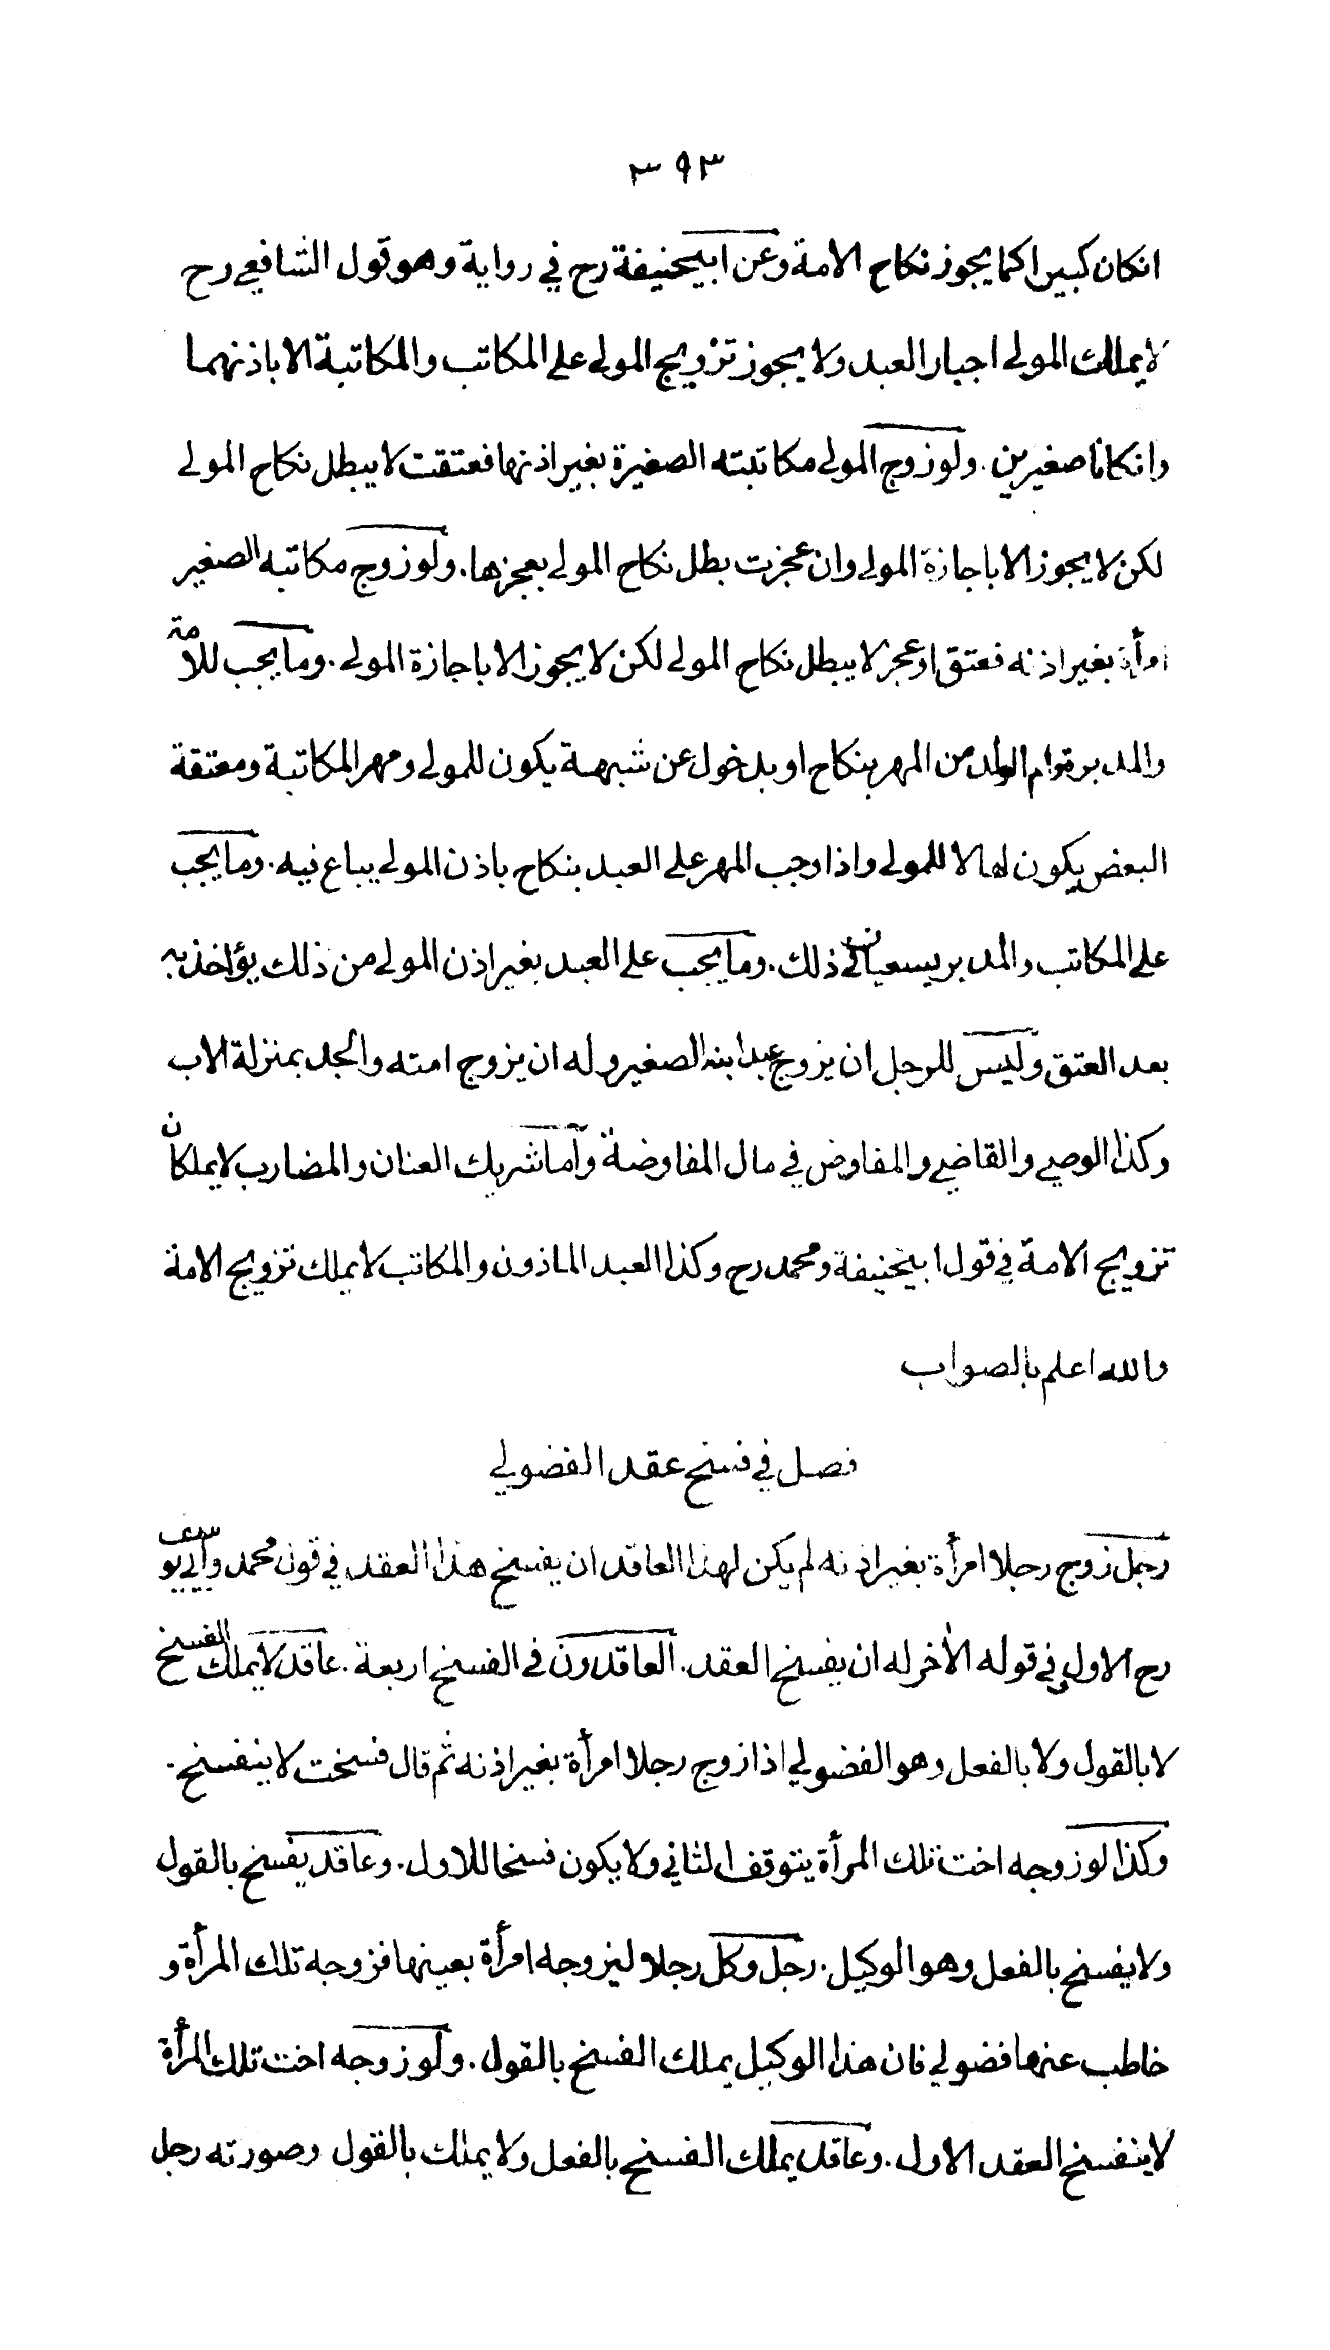 ٣٩٣
انكان كبيرا كما يجوز نكاح الامة وعن ابيحنيفة رح في رواية وهو قول الشافعي رح
لا يملك المولى اجبار العبد ولا يجوز تزويج المولى على المكاتب والمكاتبة الا باذنهما
وانكانا صغيرين . ولو زوج المولى مكاتبته الصغيرة بغير اذنها فعتقت لا يبطل نكاح المولى
لكن لا يجوز الا باجازة المولى وان عجزت بطل نكاح المولى بعجزها . ولو زوج مكاتبه الصغير
امرأة بغير اذنه فعتق او عجز لا يبطل نكاح المولى لكن لا يجوز الا باجازة المولى . وما يجب للامة
والمدبرة وام الولد من المهر بنكاح او بدخول عن شبهة يكون للمولى ومهر المكاتبة ومعتقة
البعض يكون لها لا للمولى واذا وجب المهر على العبد بنكاح باذن المولى يباع فيه . وما يجب
على المكاتب والمدبر يسعيان في ذلك . وما يجب على العبد بغير اذن المولى من ذلك يؤاخذ به
بعد العتق وليس للرجل ان يزوج عبد ابنه الصغير وله ان يزوج امته والجد بمنزلة الاب
وكذا الوصي والقاضي والمفاوض في مال المفاوضة وأما شريك العنان والمضارب لا يملكان
تزويج الامة في قول ابيحنيفة ومحمد رح وكذا العبد الماذون والمكاتب لا يملك تزويج الامة
والله اعلم بالصواب
فصل في فسخ عقد الفضولي
رجل زوج رجلا امرأة بغير اذنه لم يكن لهذا العاقد ان يفسخ هذا العقد في قول محمد وأبي يوسف
رح الاول وفي قوله الأخر له ان يفسخ العقد . العاقدون في الفسخ اربعة . عاقد لا يملك الفسخ
لا بالقول ولا بالفعل وهو الفضولي اذا زوج رجلا امرأة بغير اذنه ثم قال فسخت لا ينفسخ .
وكذا لو زوجه اخت تلك المرأة يتوقف الثاني ولا يكون فسخا للاول . وعاقد يفسخ بالقول
ولا يفسخ بالفعل وهو الوكيل . رجل وكل رجلا ليزوجه امرأة بعينها فزوجه تلك المرأة و
خاطب عنها فضولي فان هذا الوكيل يملك الفسخ بالقول . ولو زوجه اخت تلك المرأة
لا ينفسخ العقد الاول . وعاقد يملك الفسخ بالفعل ولا يملك بالقول وصورته رجل